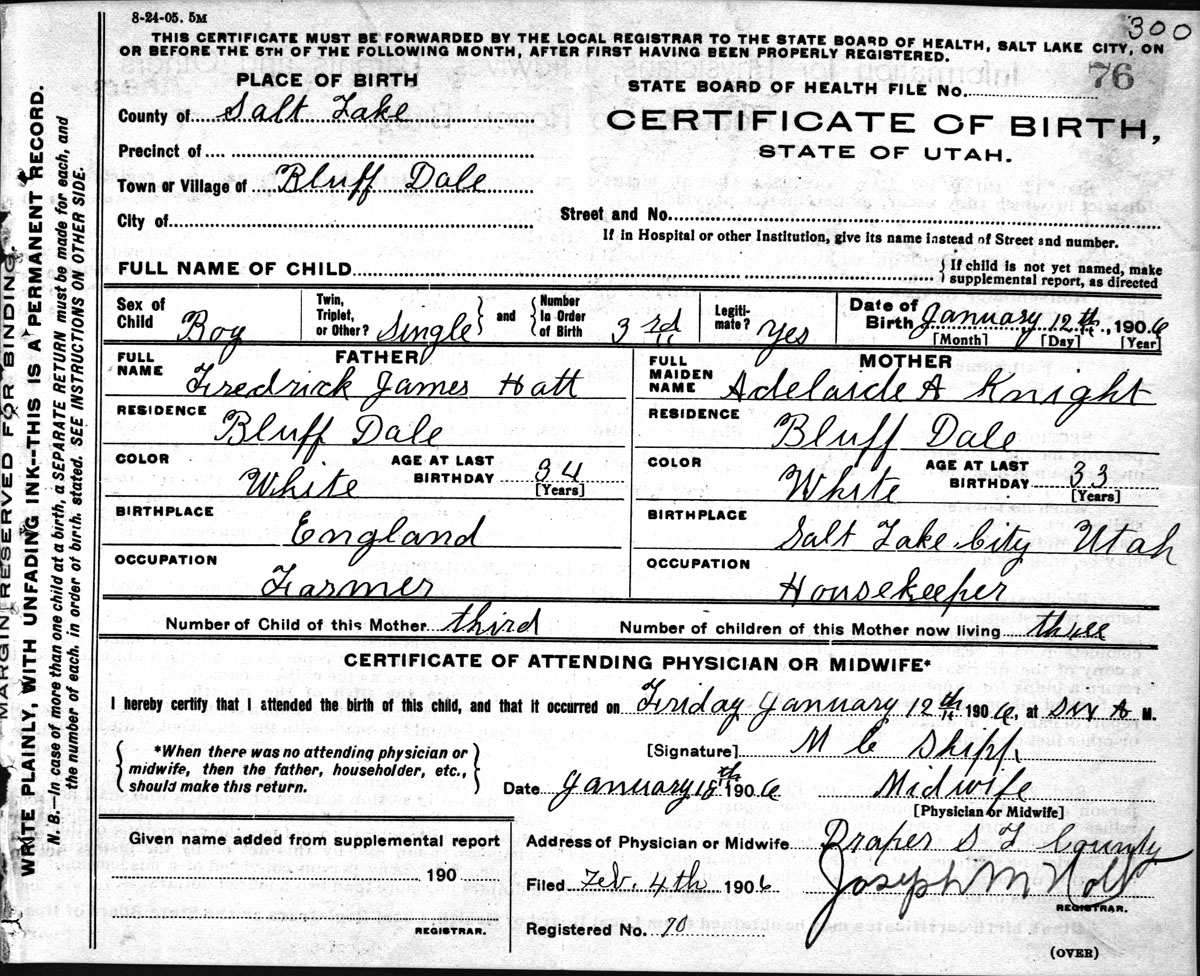 8-24-05. 5M
300
THIS CERTIFICATE MUST BE FORWARDED BY THE LOCAL REGISTRAR TO THE STATE BOARD OF HEALTH, SALT LAKE CITY, ON
OR BEFORE THE 5TH OF THE FOLLOWING MONTH, AFTER FIRST HAVING BEEN PROPERLY REGISTERED.
MARGIN RESERVED FOR BINDING.
WRITE PLAINLY, WITH UNFADING INK--THIS IS A PERMANENT RECORD.
N. B.—In case of more than one child at a birth, a SEPARATE RETURN must be made for each, and
the number of each, in order of birth, stated. SEE INSTRUCTIONS ON OTHER SIDE.
PLACE OF BIRTH
STATE BOARD OF HEALTH FILE No. 76
County of Salt Lake
CERTIFICATE OF BIRTH,
STATE OF UTAH.
Precinct of
Town or Village of Bluff Dale
City of
Street and No.
If in Hospital or other Institution, give its name instead of Street and number.
FULL NAME OF CHILD
If child is not yet named, make
supplemental report, as directed
Sex of Child Boy
Twin, Triplet, or Other? Single
and
Number In Order of Birth 3rd
Legiti-mate? Yes
Date of Birth January 12th, 1906
[Month] [Day] [Year]
FATHER
FULL NAME Fredrick James Hatt
RESIDENCE Bluff Dale
COLOR White AGE AT LAST BIRTHDAY 34 [Years]
BIRTHPLACE England
OCCUPATION Farmer
MOTHER
FULL MAIDEN NAME Adelaide A Knight
RESIDENCE Bluff Dale
COLOR White AGE AT LAST BIRTHDAY 33 [Years]
BIRTHPLACE Salt Lake City Utah
OCCUPATION Housekeeper
Number of Child of this Mother third Number of children of this Mother now living three
CERTIFICATE OF ATTENDING PHYSICIAN OR MIDWIFE*
I hereby certify that I attended the birth of this child, and that it occurred on Friday January 12th 1906, at six A M.
*When there was no attending physician or
midwife, then the father, householder, etc.,
should make this return.
[Signature] M C Shipp
Date January 18th 1906 Midwife
[Physician or Midwife]
Given name added from supplemental report
190
REGISTRAR.
Address of Physician or Midwife Draper S L County
Filed Feb. 4th 1906 Joseph M
REGISTRAR.
Registered No. 70
(OVER)